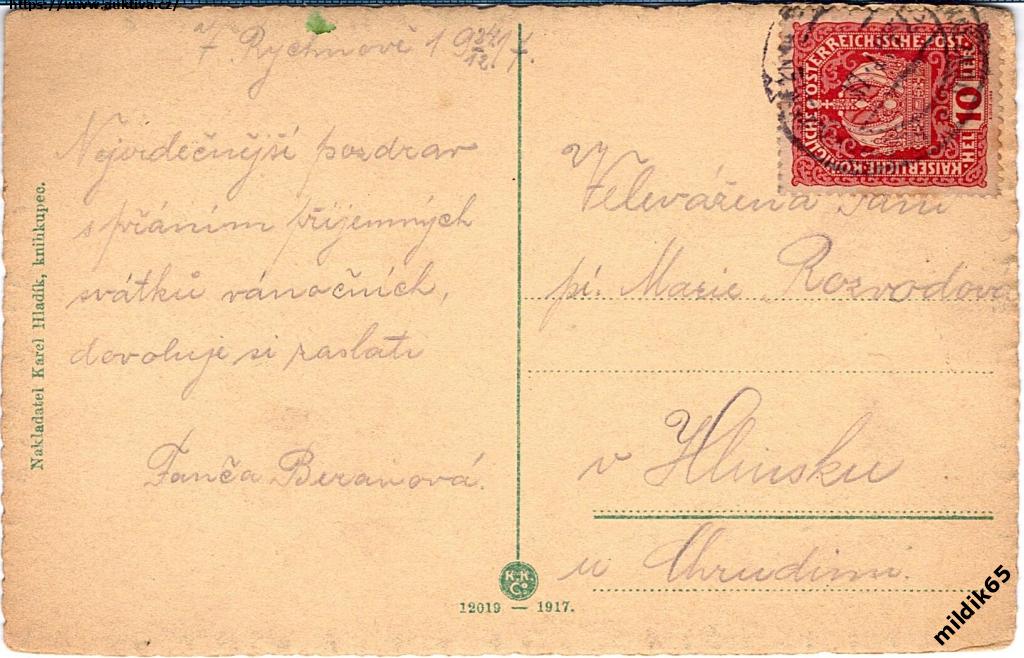 V Rychnově 19 24/12 17.
Nejvděčnější pozdrav
s přáním příjemných
svátků vánočních,
dovoluje si zaslati
Fanča Beranová.
Nakladatel Karel Hladík, knihkupec.
K.K.
Co
12019 — 1917.
KAISERLICHE KÖNIGLICHE ÖSTERREICHISCHE POST
HEL 10 LER
Velevážená Paní
pí. Marie Rozvodová
v Hlinsku
u Chrudimi.
mildik65